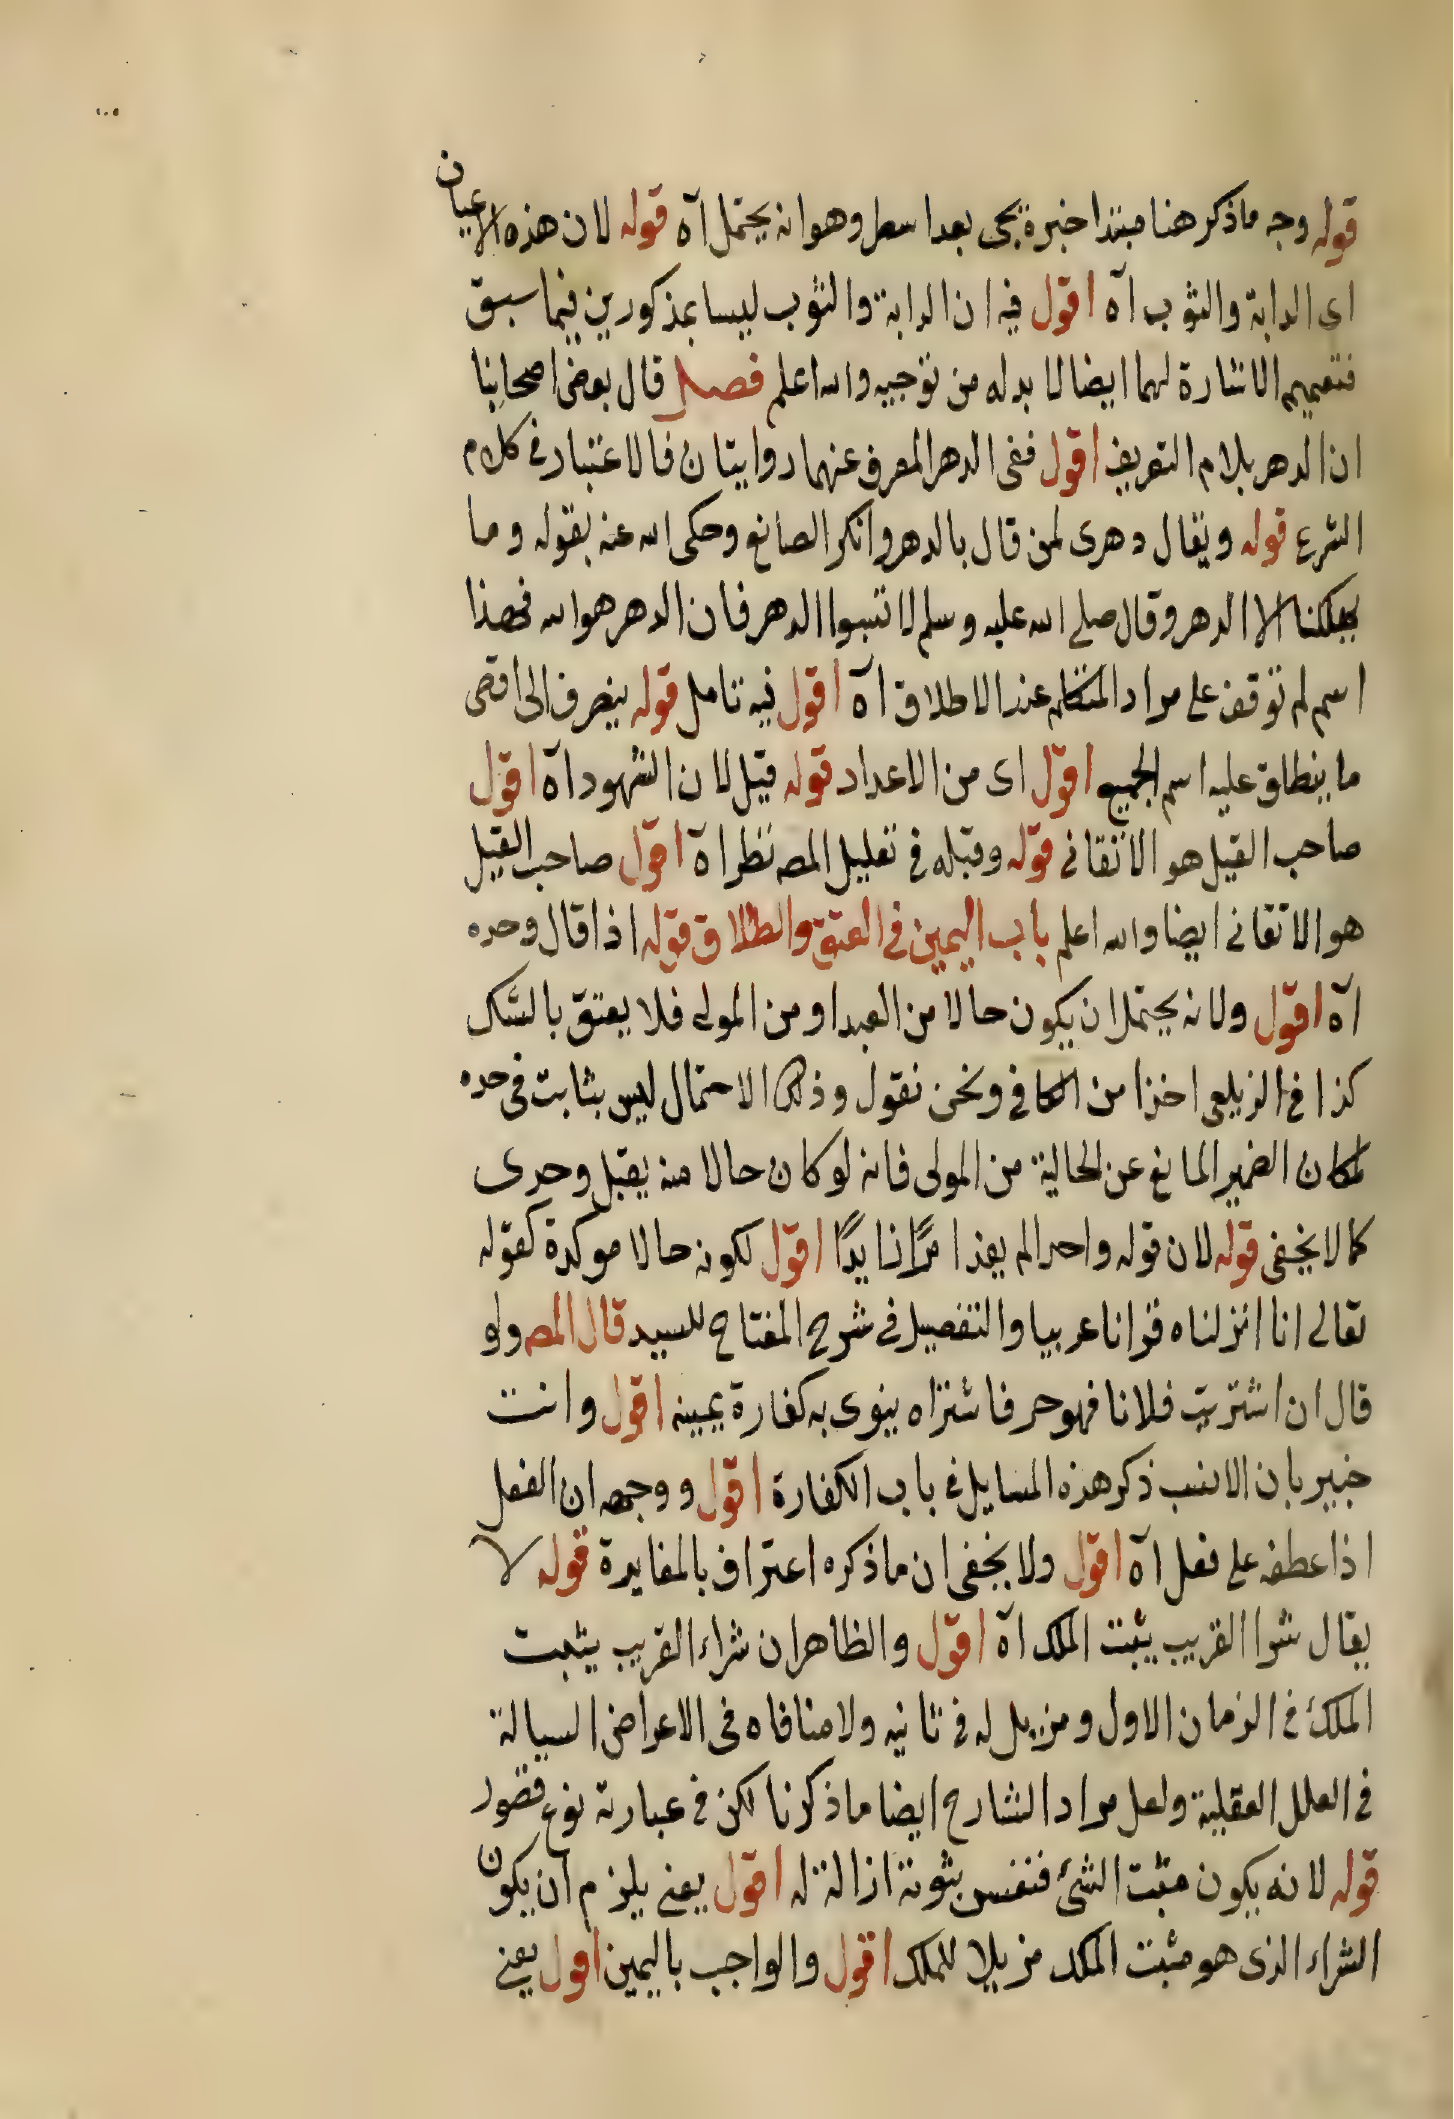 ١٠٥
قوله وجه ما ذكر هنا مبتدا خبره يجى بعد اسطر وهو انه يحتمل اه قوله لان هذه الاعيان
اى الدابة والثوب اه اقول فيه ان الدابة والثوب ليسا بمذكورين فيما سبق
فتعميم الاشارة لهما ايضا لا بد له من توجيه والله اعلم فصل قال بعض اصحابنا
ان الدهر بلام التعريف اقول ففى الدهر المعرف عنهما روايتان فالاعتبار فى كلام
الشرع قوله ويقال دهرى لمن قال بالدهر وانكر الصانع وحكى الله عنه بقوله وما
يهلكنا الا الدهر وقال صلى الله عليه وسلم لا تسبوا الدهر فان الدهر هو الله فهذا
اسم لم توقف على مراد المتكلم عند الاطلاق اه اقول فيه تامل قوله ينصرف الى اقصى
ما ينطلق عليه اسم الجميع اقول اى من الاعداد قوله قيل لان الشهود اه اقول
صاحب القيل هو الاتقانى قوله وقبله فى تعليل المص نظر اه اقول صاحب القيل
هو الاتقانى ايضا والله اعلم باب اليمين فى العتق والطلاق قوله اذا قال وحده
اه اقول ولانه يحتمل ان يكون حالا من العبد او من المولى فلا يعتق بالشك
كذا فى الزيلعى اخذا من الكافى ونحن نقول وذلك الاحتمال ليس بثابت فى حده
لمكان الضمير المانع عن الحالية من المولى فانه لو كان حالا منه يقبل وحدى
كما لا يخفى قوله لان قوله واحدا لم يفد امرا زايدا اقول لكونه حالا موكدة كقوله
تعالى انا انزلناه قرانا عربيا والتفصيل فى شرح المفتاح للسيد قال المص ولو
قال ان اشتريت فلانا فهو حر فاشتراه ينوى به كفارة يمينه اقول وانت
خبير بان الانسب ذكر هذه المسايل فى باب الكفارة اقول ووجهه ان الفعل
اذا عطف على فعل اه اقول ولا يخفى ان ما ذكره اعتراف بالمغايرة قوله لا
يقال شرا القريب يثبت الملك اه اقول والظاهر ان شراء القريب يثبت
الملك فى الزمان الاول ومزيل له فى ثانيه ولا منافاه فى الاعراض السيالة
فى العلل العقلية ولعل مراد الشارح ايضا ما ذكرنا لكن فى عبارته نوع قصور
قوله لانه يكون مثبت الشئ فنفس ثبوته ازالة له اقول يعنى يلزم ان يكون
الشراء الذى هو مثبت الملك مزيلا للملك اقول والواجب باليمين اقول يعنى